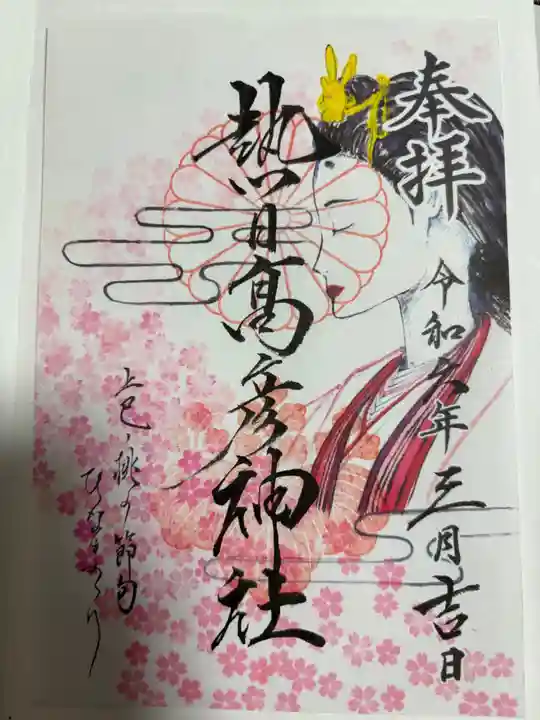 奉拝
令和六年三月吉日
熱日高彦神社
上巳ノ桃の節句
ひなまつり